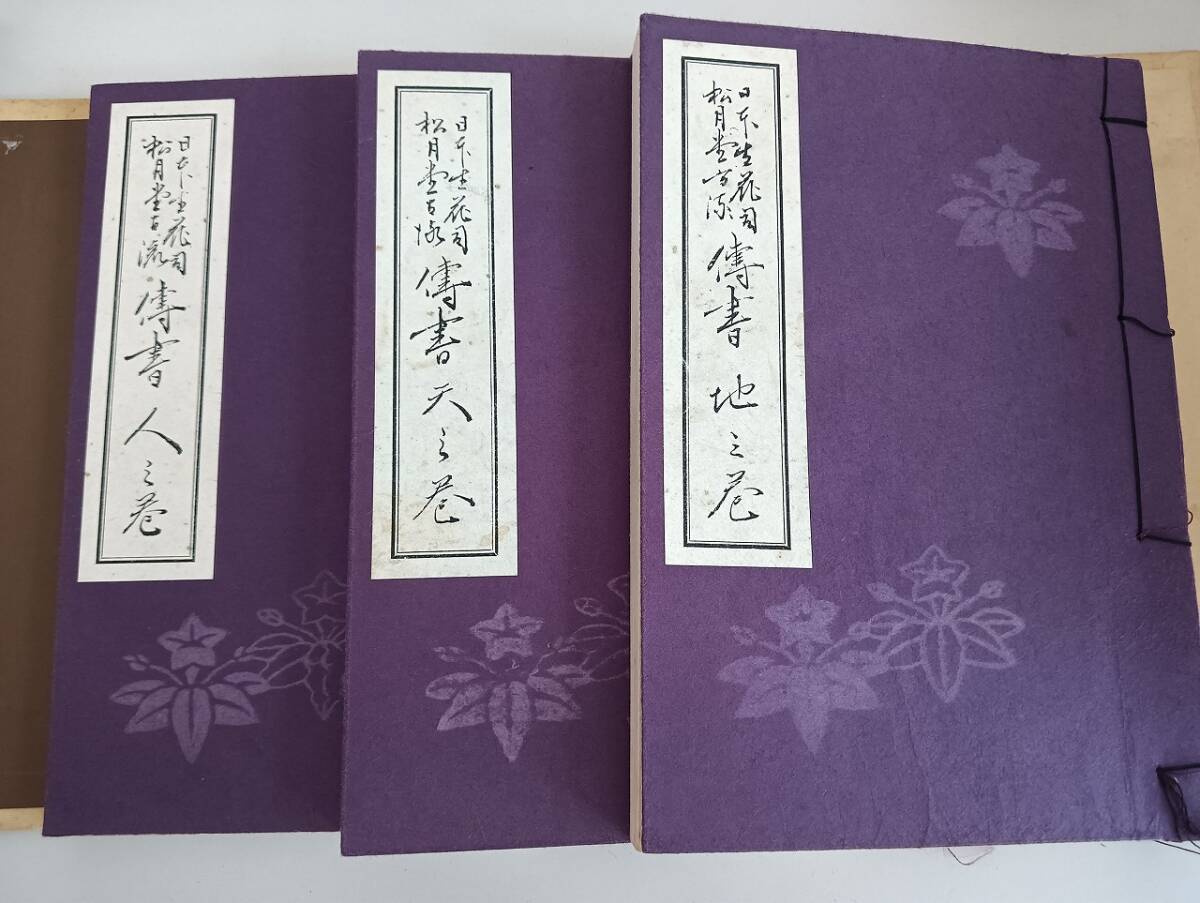 日本生花司
松月堂古流
傳書 地之巻
日本生花司
松月堂古流
傳書 天之巻
日本生花司
松月堂古流
傳書 人之巻